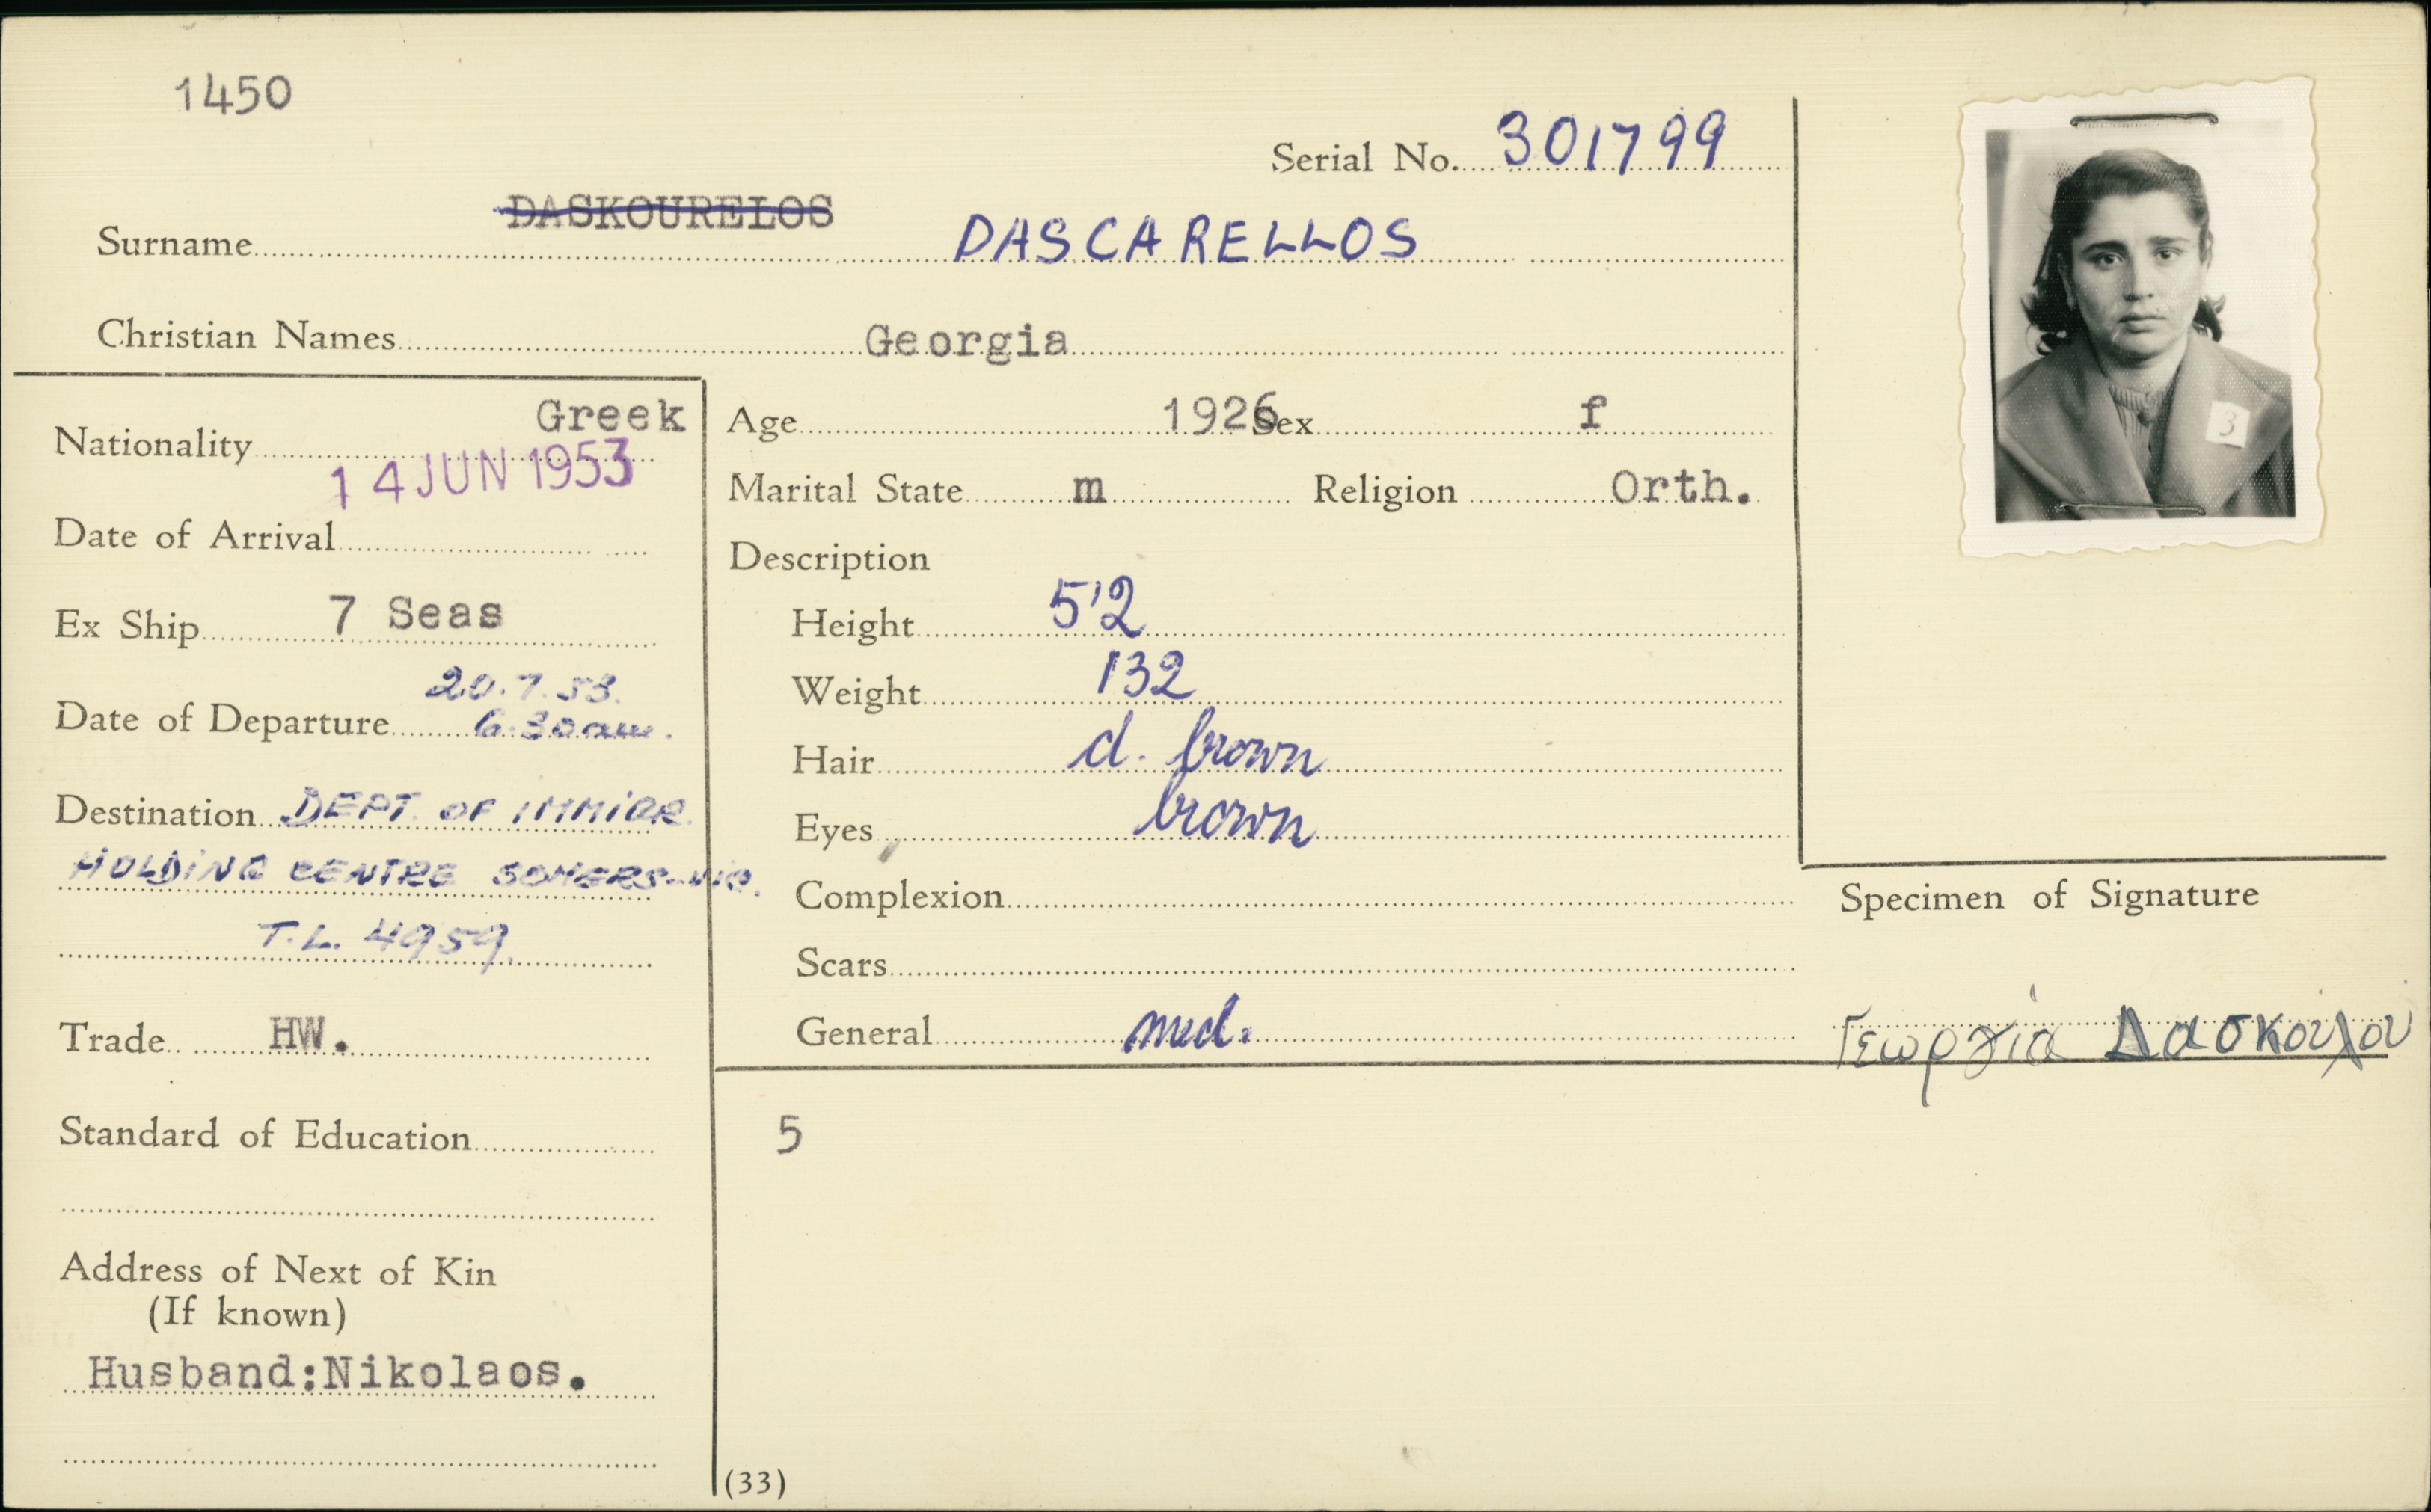 1450
Serial No. 301799
DASKOURELOS
Surname DASCARELLOS
Christian Names Georgia
Nationality Greek
14 JUN 1953
Date of Arrival
Ex Ship 7 Seas
20.7.53.
Date of Departure 6.30am.
Destination DEPT. OF IMMIGR.
HOLDING CENTRE SOMERS-VIC.
T.L. 4959.
Trade HW.
Standard of Education
Address of Next of Kin
(If known)
Husband:Nikolaos.
Age 1926 Sex f
Marital State m Religion Orth.
Description
Height 5'2
Weight 132
Hair d. brown
Eyes brown
Complexion
Scars
General med.
5
(33)
3
Specimen of Signature
Γεωργία Δασκουλου